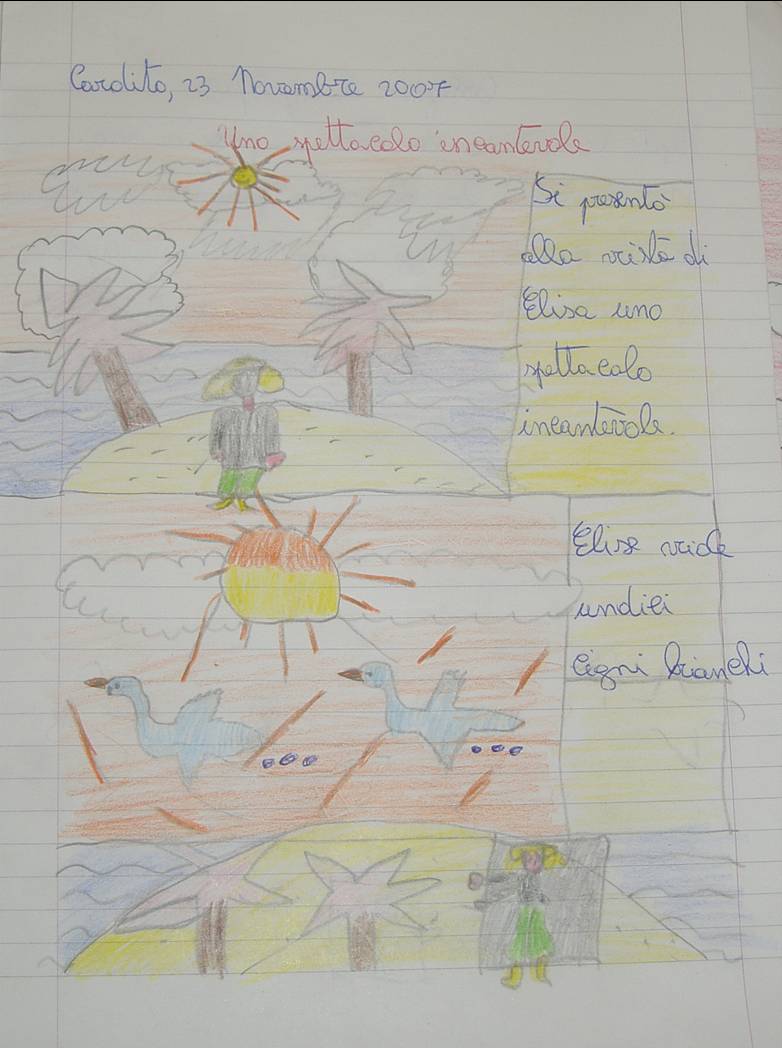 Cardito, 23 Novembre 2007
Uno spettacolo incantevole
Si presentò
alla vista di
Elisa uno
spettacolo
incantevole.
Elisa vide
undici
cigni bianchi